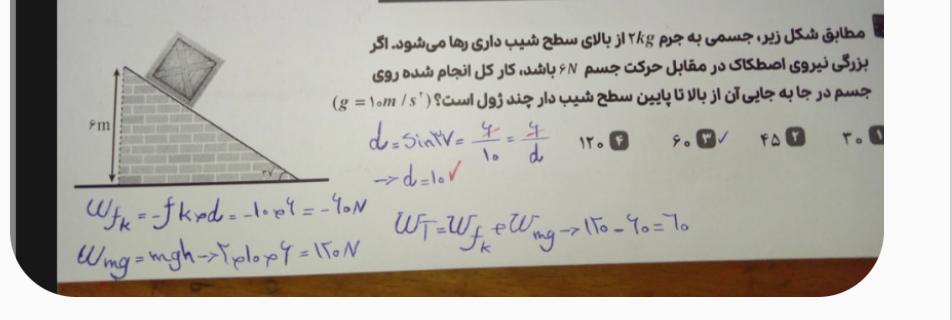 مطابق شکل زیر، جسمی به جرم ۲kg از بالای سطح شیب داری رها می‌شود. اگر
بزرگی نیروی اصطکاک در مقابل حرکت جسم ۶N باشد، کار کل انجام شده روی
جسم در جا به جایی آن از بالا تا پایین سطح شیب دار چند ژول است؟ (g = ۱۰m / s²)
۱ ۳۰ ۲ ۴۵ ۳ ۶۰ ✓ ۴ ۱۲۰
۶m
۳۷
d = sin۳۷ = ۶/۱۰ = ۶/d
→ d = ۱۰ ✓
W_fk = -fk×d = -۱۰×۶ = -۶۰N
W_mg = mgh → ۲×۱۰×۶ = ۱۲۰N
W_T = W_fk + W_mg → ۱۲۰ - ۶۰ = ۶۰